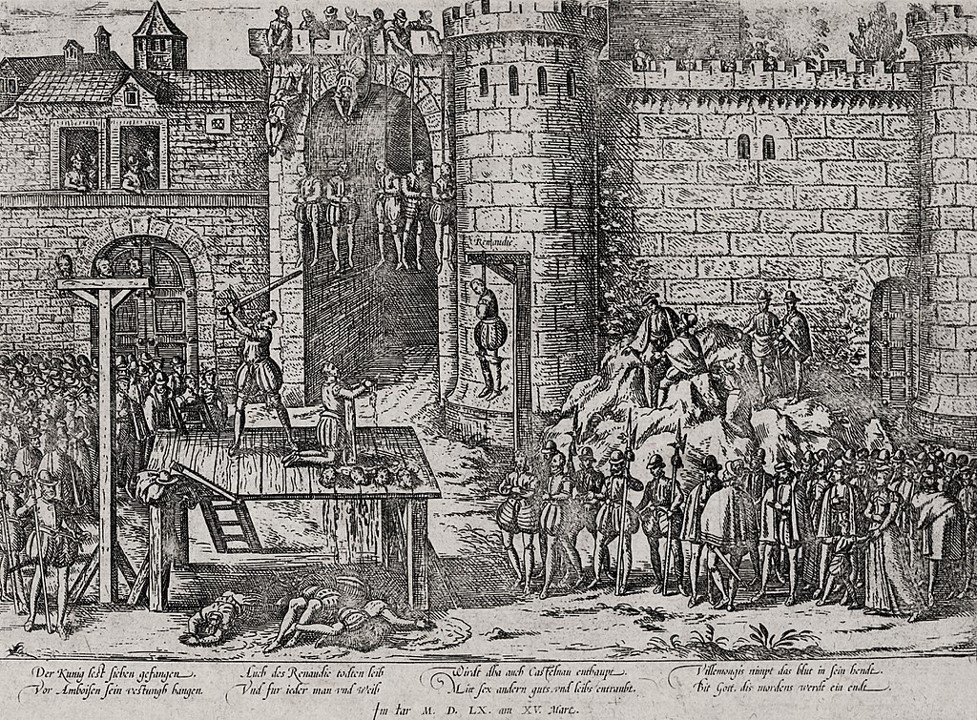 Renaudie.
Der Kunig lest sieben gefangen
Vor Amboisen sein vestungh hangen.
Auch des Renaudie todten leib
Vnd fur ieder man vnd weib
Wirdt alda auch Castelnau enthaupt
Mit sex andern guts vnd leibs entraubt.
Villemongis nimpt das blut in sein hendt
Bit Gott, dis mordens werdt ein endt
Im iar M. D. LX. am XV. Mart.